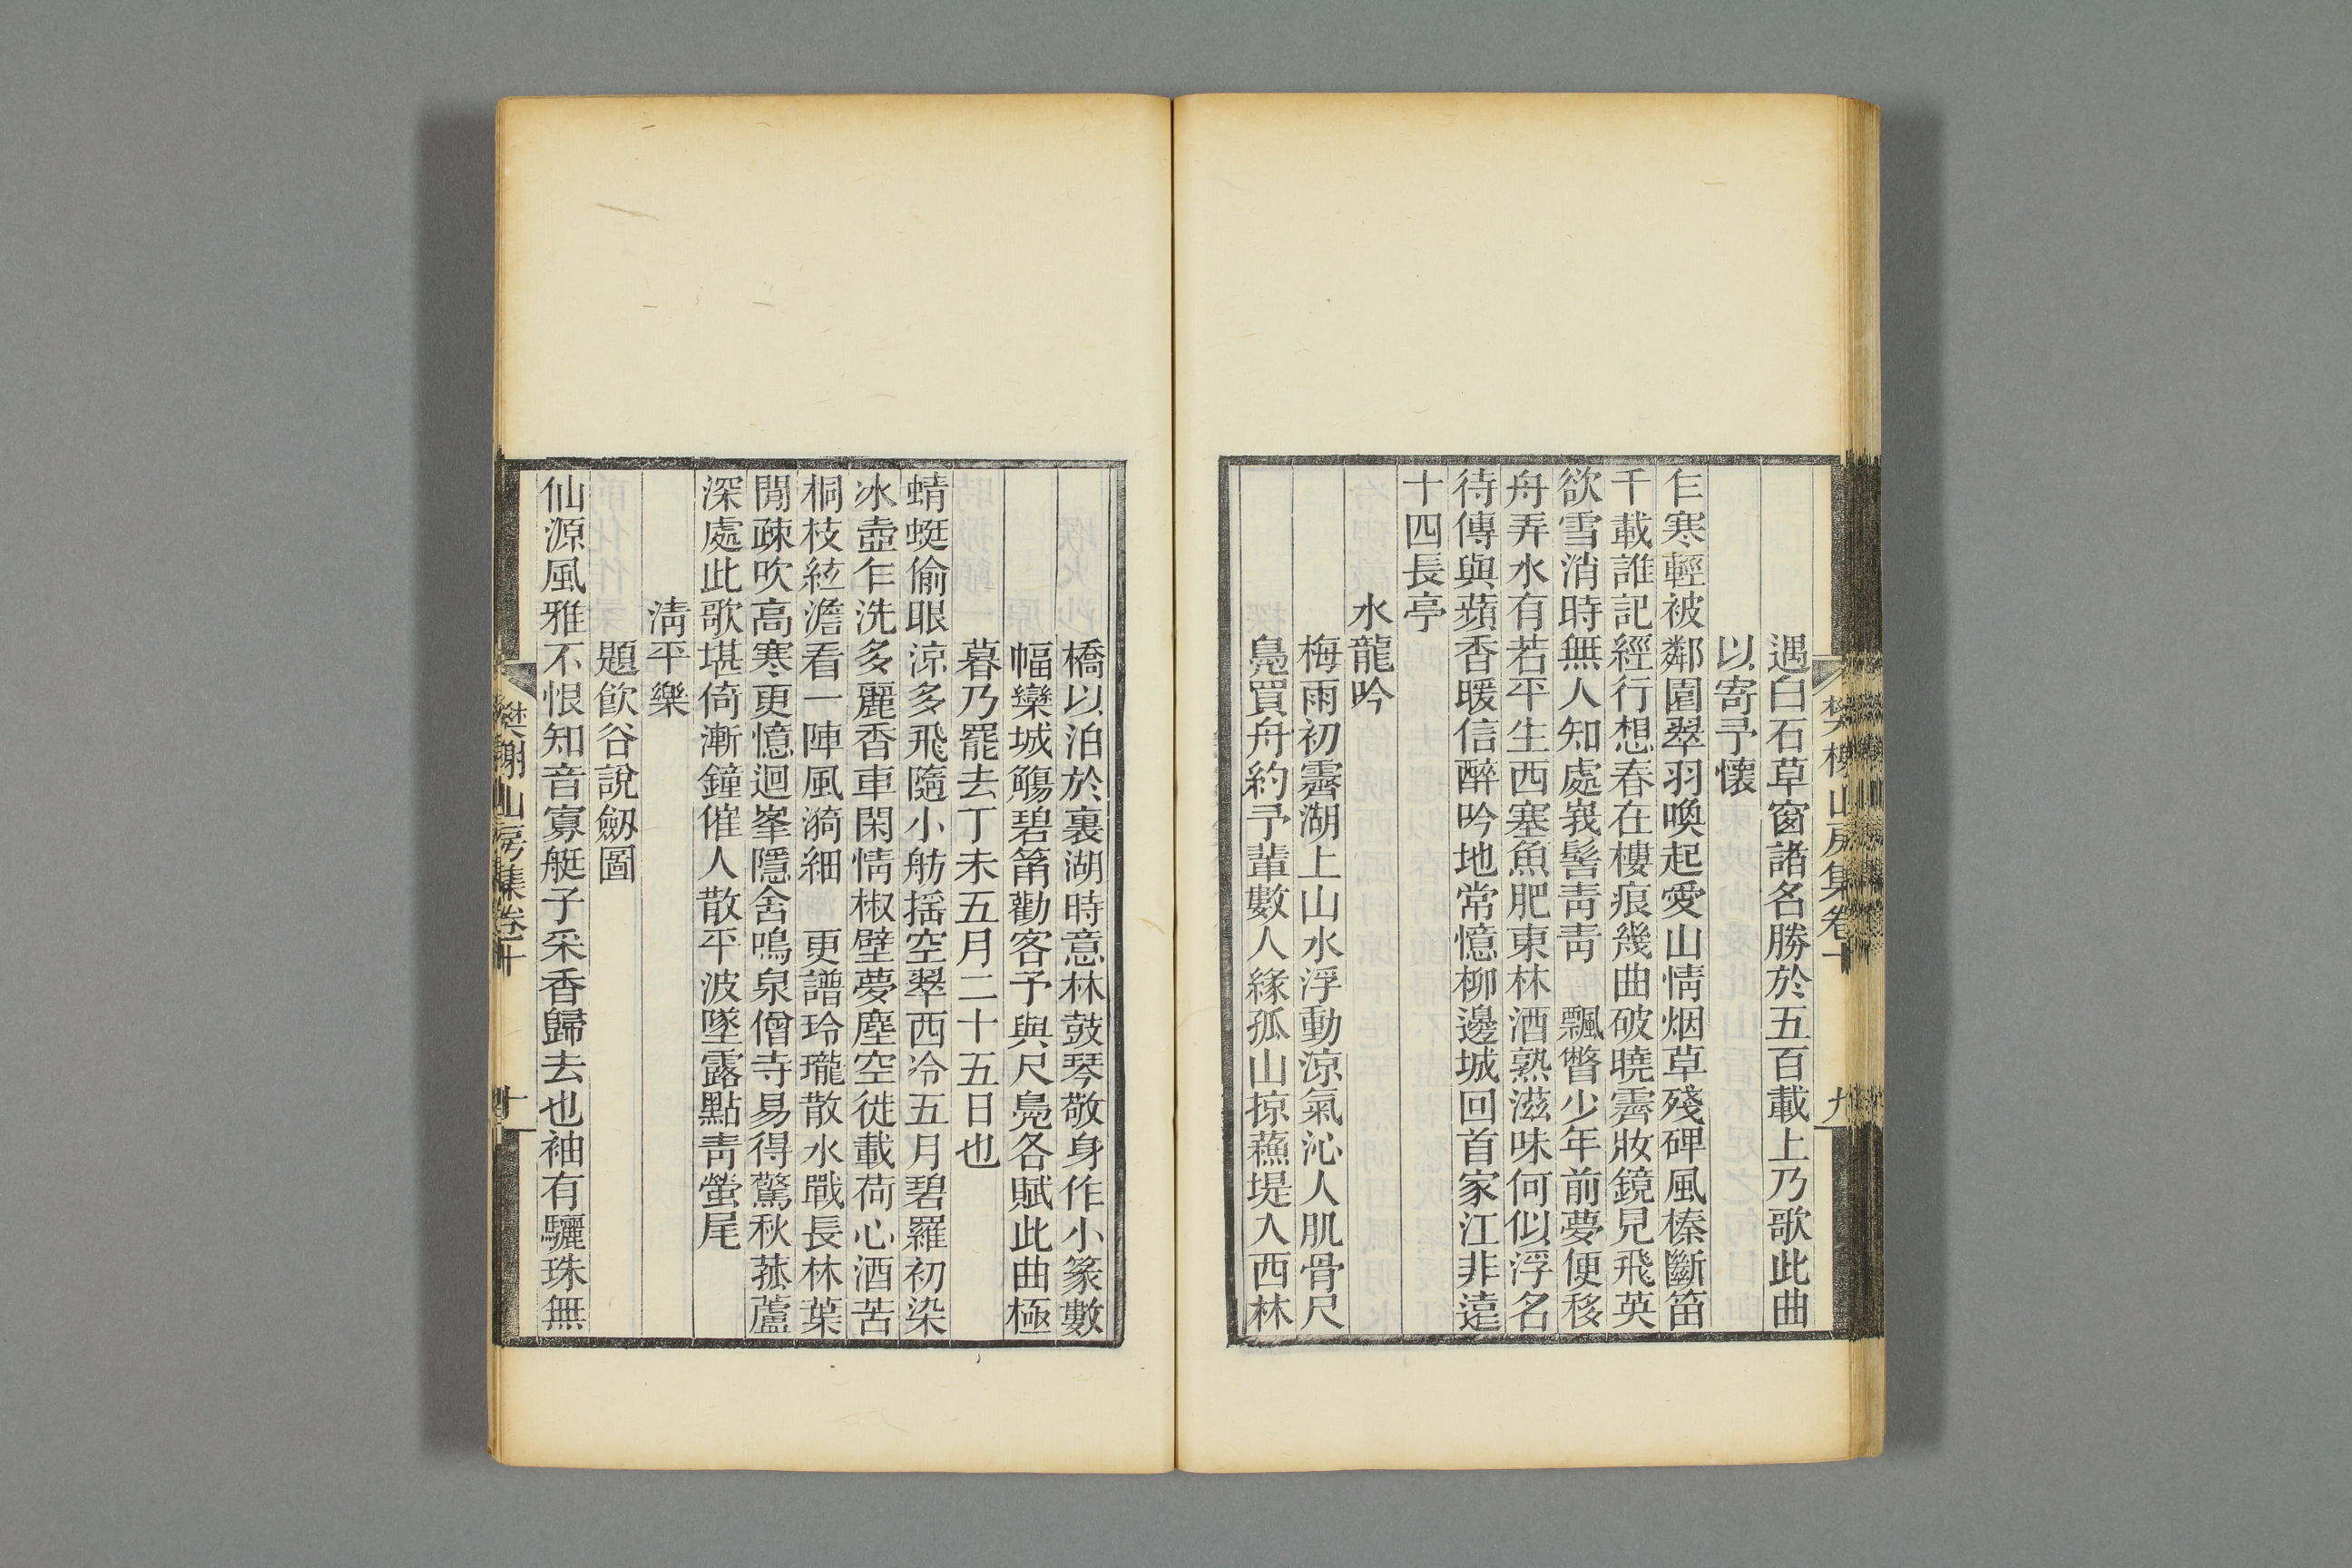 樊榭山房集卷十
九
遇白石草窗諸名勝於五百載上乃歌此曲
以寄予懷
乍寒輕被鄰園翠羽喚起愛山情烟草殘碑風榛斷笛
千載誰記經行想春在樓痕幾曲破曉霽妝鏡見飛英
欲雪消時無人知處峩髻靑靑　飄瞥少年前夢便移
舟弄水有若平生西塞魚肥東林酒熟滋味何似浮名
待傳與蘋香暖信醉吟地常憶柳邊城回首家江非遠
十四長亭
水龍吟
梅雨初霽湖上山水浮動涼氣沁人肌骨尺
鳧買舟約予輩數人緣孤山掠蘇堤入西林
橋以泊於裏湖時意林鼓琴敬身作小篆數
幅欒城觴碧筩勸客予與尺鳧各賦此曲極
暮乃罷去丁未五月二十五日也
蜻蜓偷眼涼多飛隨小舫揺空翠西泠五月碧羅初染
冰壺乍洗多麗香車閑情椒壁夢塵空徙載荷心酒苦
桐枝絃澹看一陣風漪細　更譜玲瓏散水戰長林葉
閒疎吹高寒更憶迴峯隱舍鳴泉僧寺易得驚秋菰蘆
深處此歌堪倚漸鐘催人散平波墜露點靑螢尾
淸平樂
題飮谷說劒圖
仙源風雅不恨知音寡艇子采香歸去也袖有驪珠無
樊榭山房集卷十
十